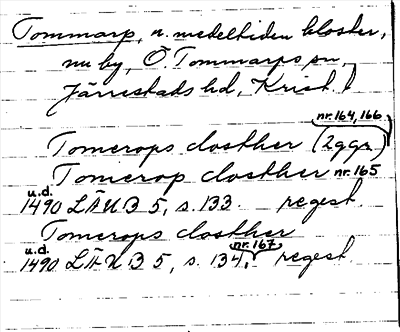 Tommarp, u. medeltiden kloster,
nu by, Ö Tommarps sn,
Järrestads hd, Krist. l
nr. 164, 166
Tomerops closther (2 ggr)
Tomerop closther nr. 165
u.d.
1490 LÄUB 5, s. 133. regest.
Tomerops closther
u.d. nr. 167
1490 LÄUB 5, s. 134, regest.